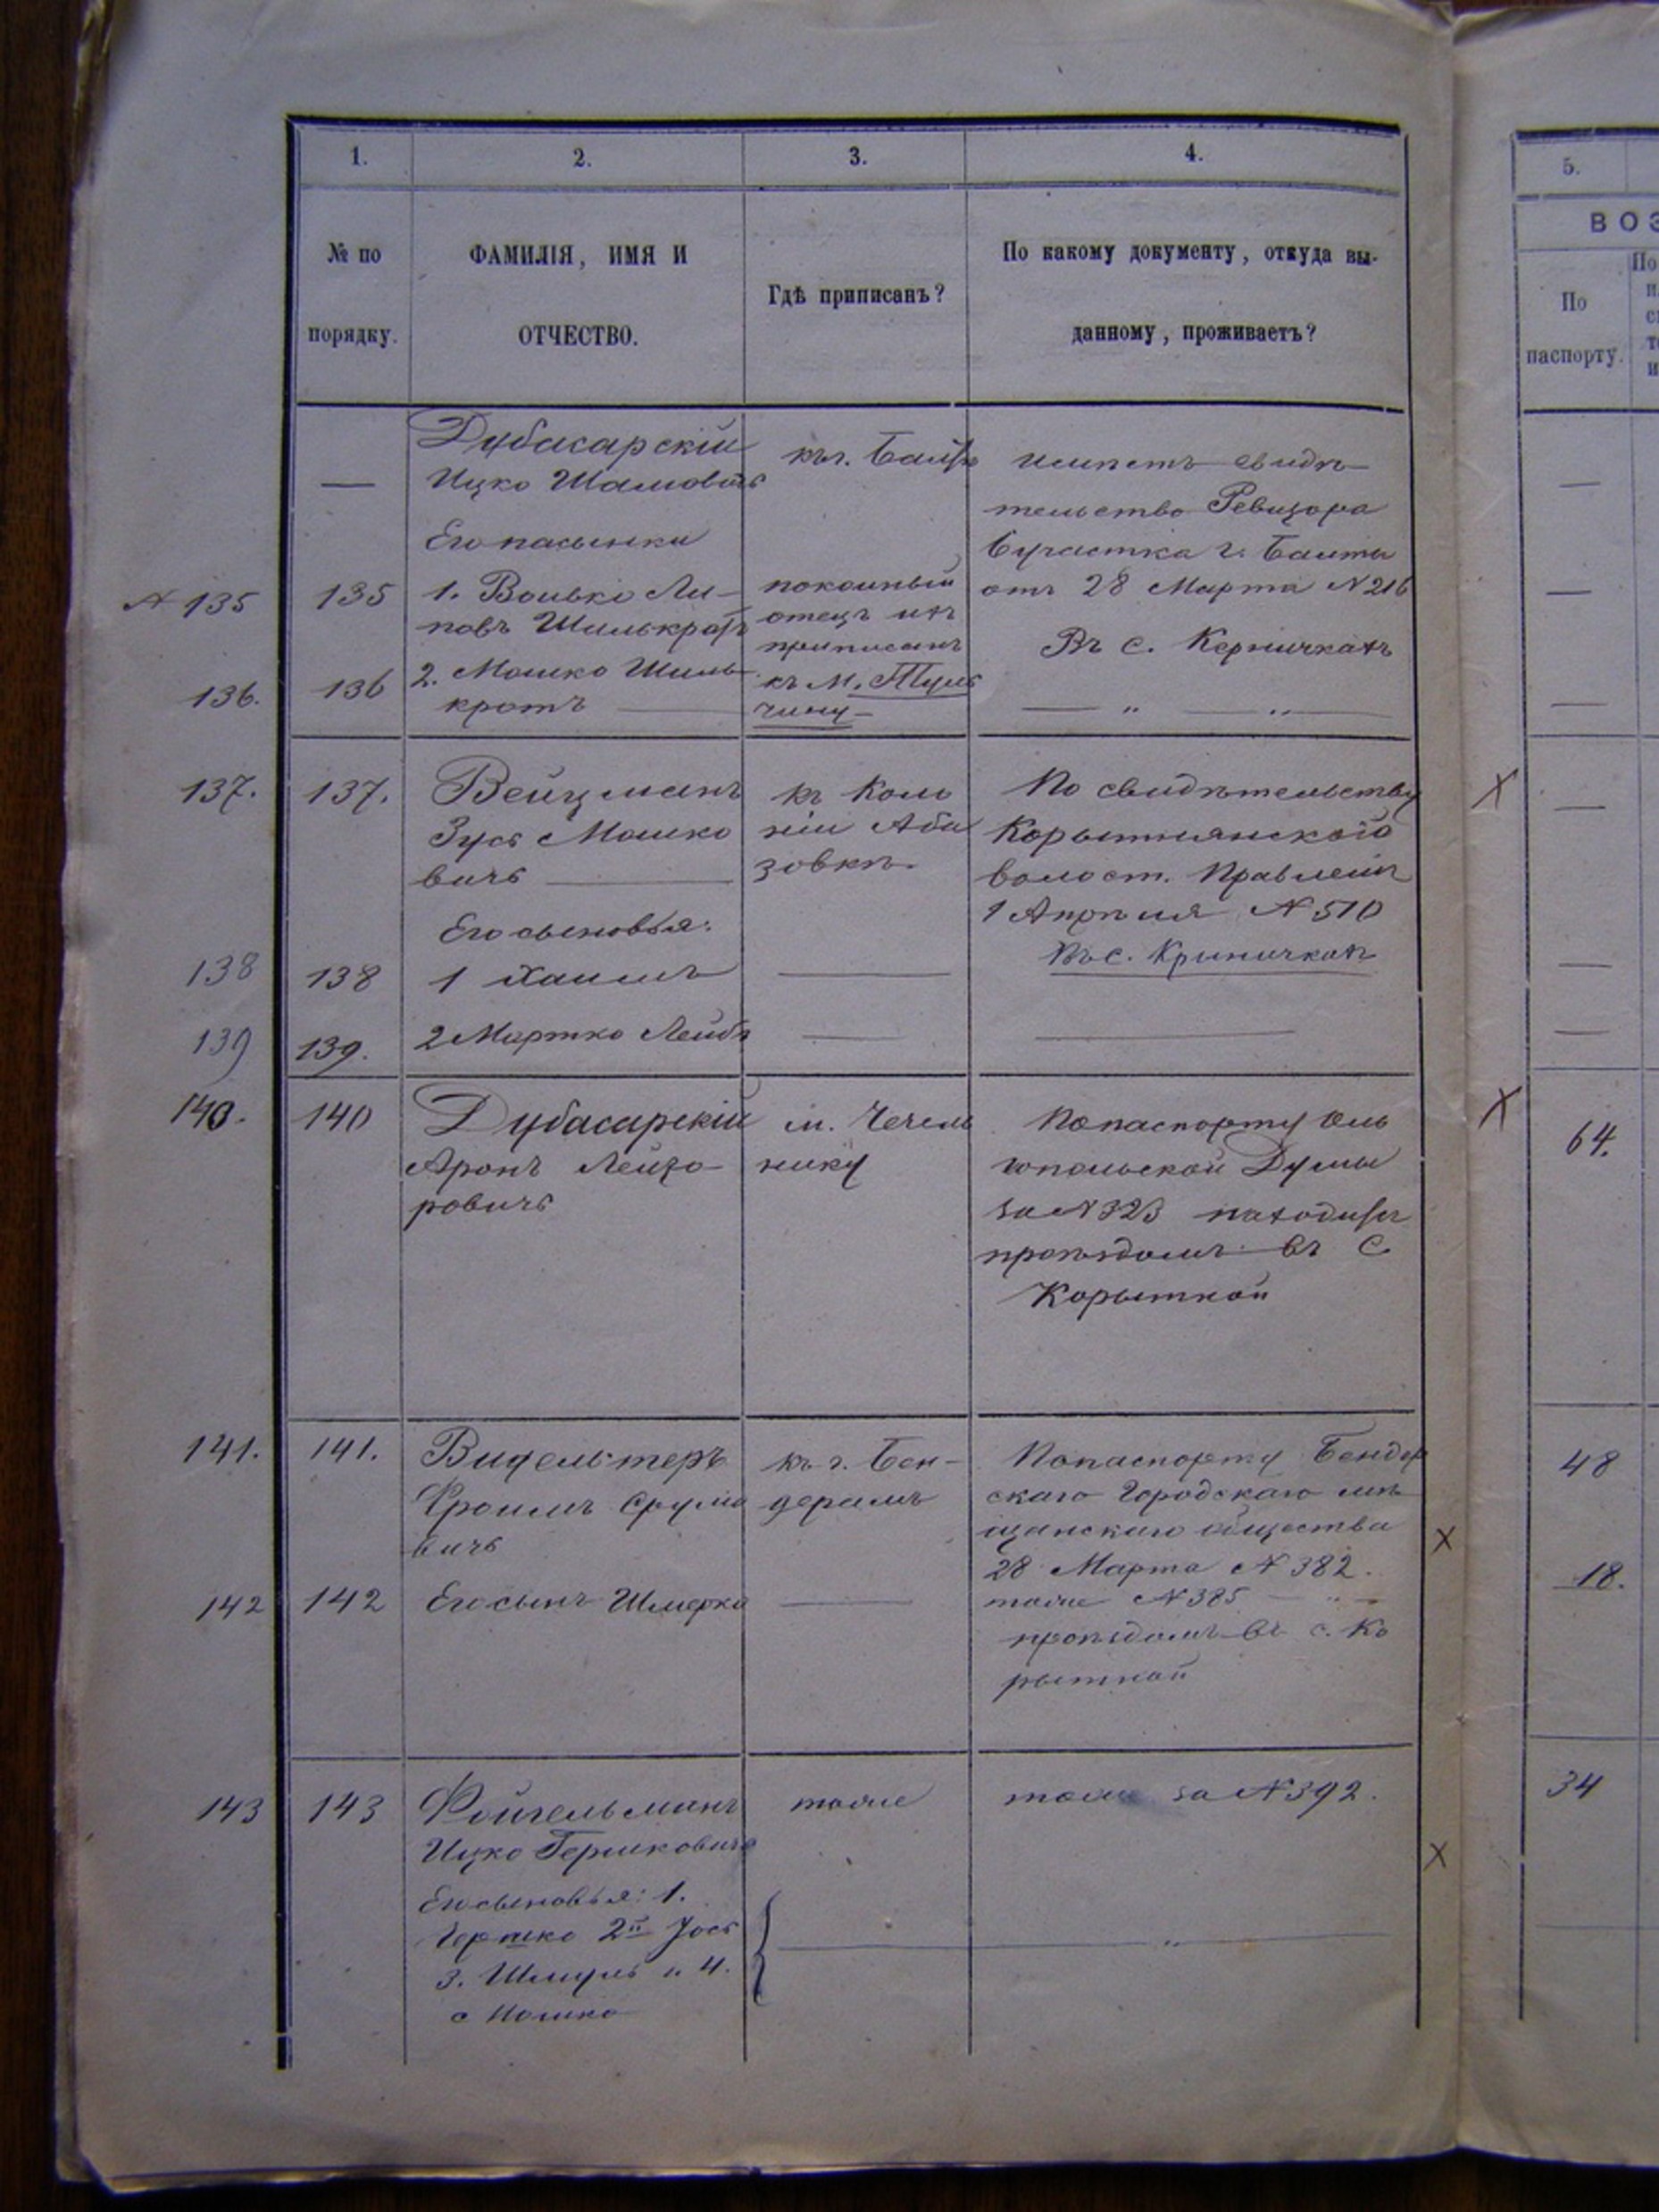 1. 2. 3. 4.
5.
№ по
порядку.
ФАМИЛІЯ, ИМЯ И
ОТЧЕСТВО.
Гдѣ приписанъ?
По какому документу, откуда вы-
данному, проживаетъ?
По
паспорту.
—
Дубасарскій
Ицко
Его пасынки
къ г. Балтѣ
имѣетъ свидѣ-
тельство Ревизора
участка г. Балты
отъ 28 Марта № 216
Въ с. Керничкахъ
№ 135
135
1. Волько Ли-
повъ Шилькротъ
покойный
отецъ ихъ
приписанъ
къ м. Туль
чину
136.
136
2. Мошко Шиль-
кротъ
— „ — „ —
137.
137.
Вейцманъ
Зусь Мошко
вичъ
къ Коло
ніи Аба
зовкѣ.
По свидѣтельству
Корытнянскаго
волост. Правленія
1 Апрѣля № 510
Въ с. Криничкахъ
Его сыновья:
138
138
1 Хаимъ
139
139.
2 Мортко Лейбъ
140.
140
Дубасарскій
Аронъ Лейзо-
ровичъ
м. Чечель
нику
По паспорту Оль
гопольской Думы
за № 323 находится
проѣздомъ въ с.
Корытной
64.
141.
141.
Фроимъ Срулио
вичъ
къ г. Бен-
дерамъ
По паспорту Бендер
скаго Городскаго мѣ
щанскаго общества
28 Марта № 382.
48
142
142
Его сынъ Шмерко
тоже № 385 — „ —
проѣздомъ въ с. Ко
рытной
18.
143
143
Фойгельманъ
Ицко Гершковичъ
тоже
тоже за № 392.
34
Его сыновья: 1.
Гершко 2й Іось
3. Шмуль и 4.
Мошко